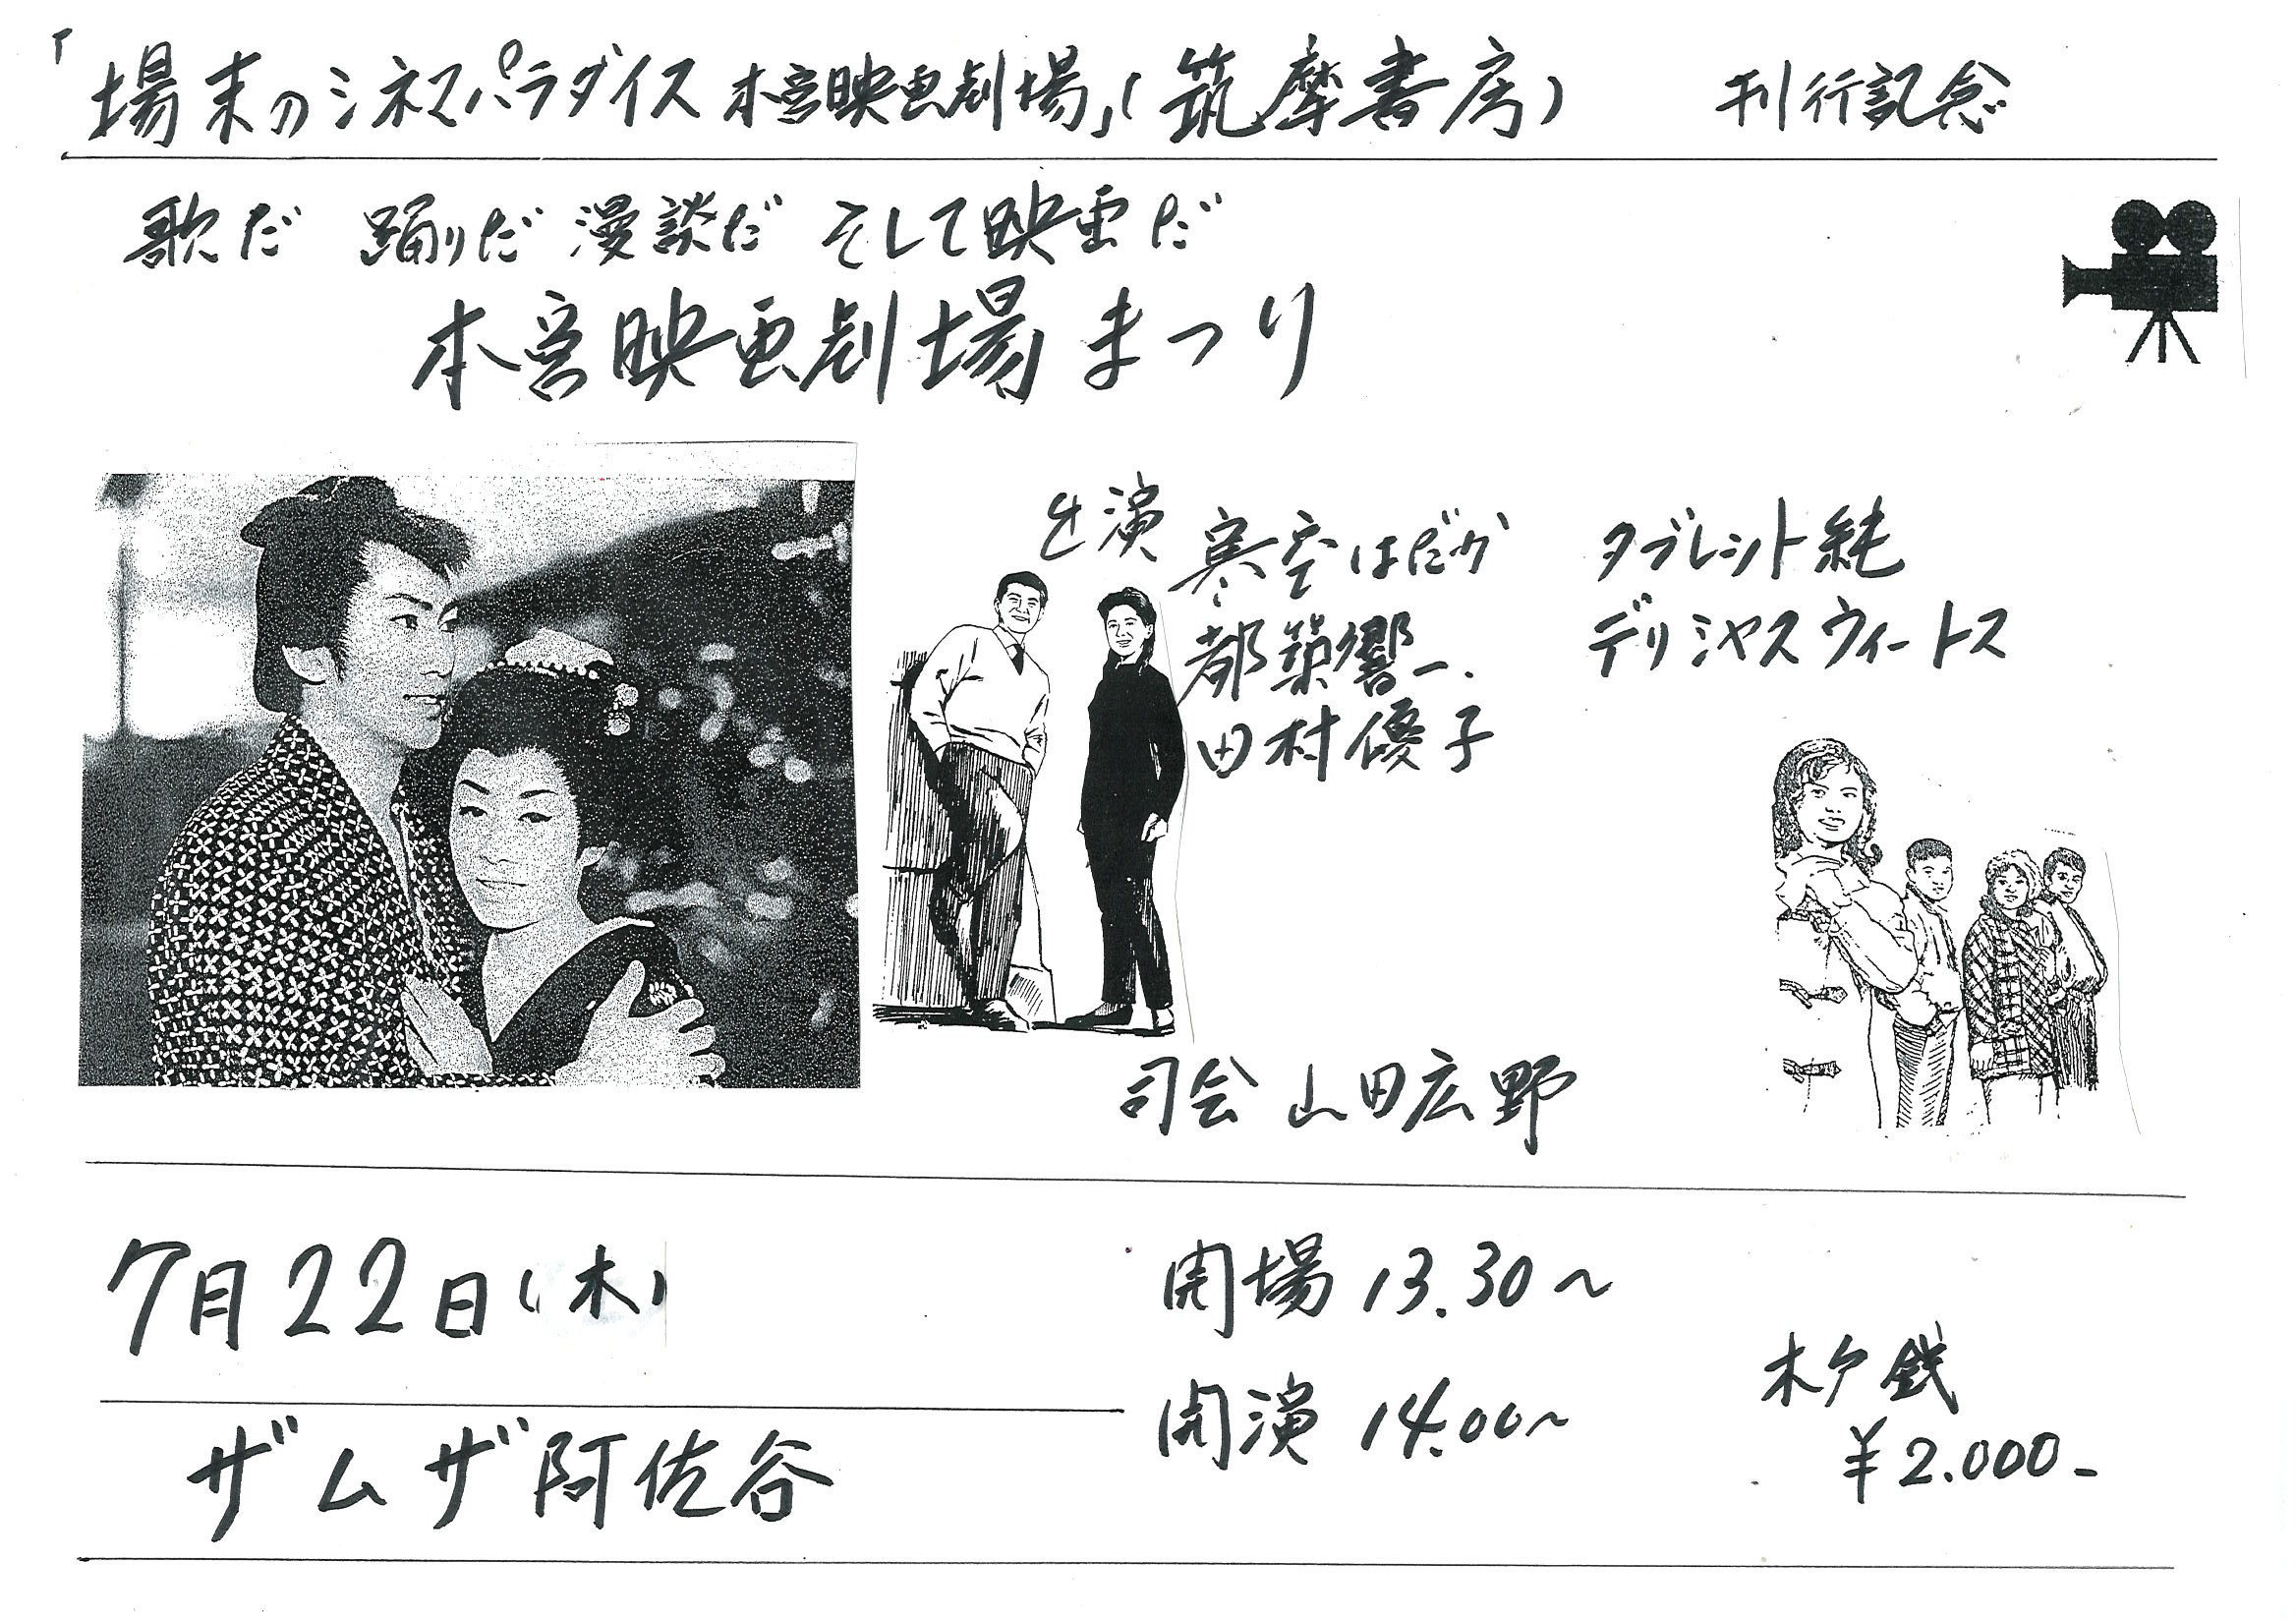 「場末のシネマパラダイス 本宮映画劇場」(筑摩書房) 刊行記念
歌だ 踊りだ 漫談だ そして映画だ
本宮映画劇場まつり
出演
寒空はだか
都築響一.
田村優子
タブレット純
デリシャスウィートス
司会 山田広野
7月22日(木)
ザムザ阿佐谷
開場 13.30~
開演 14.00~
木戸銭
¥2.000-